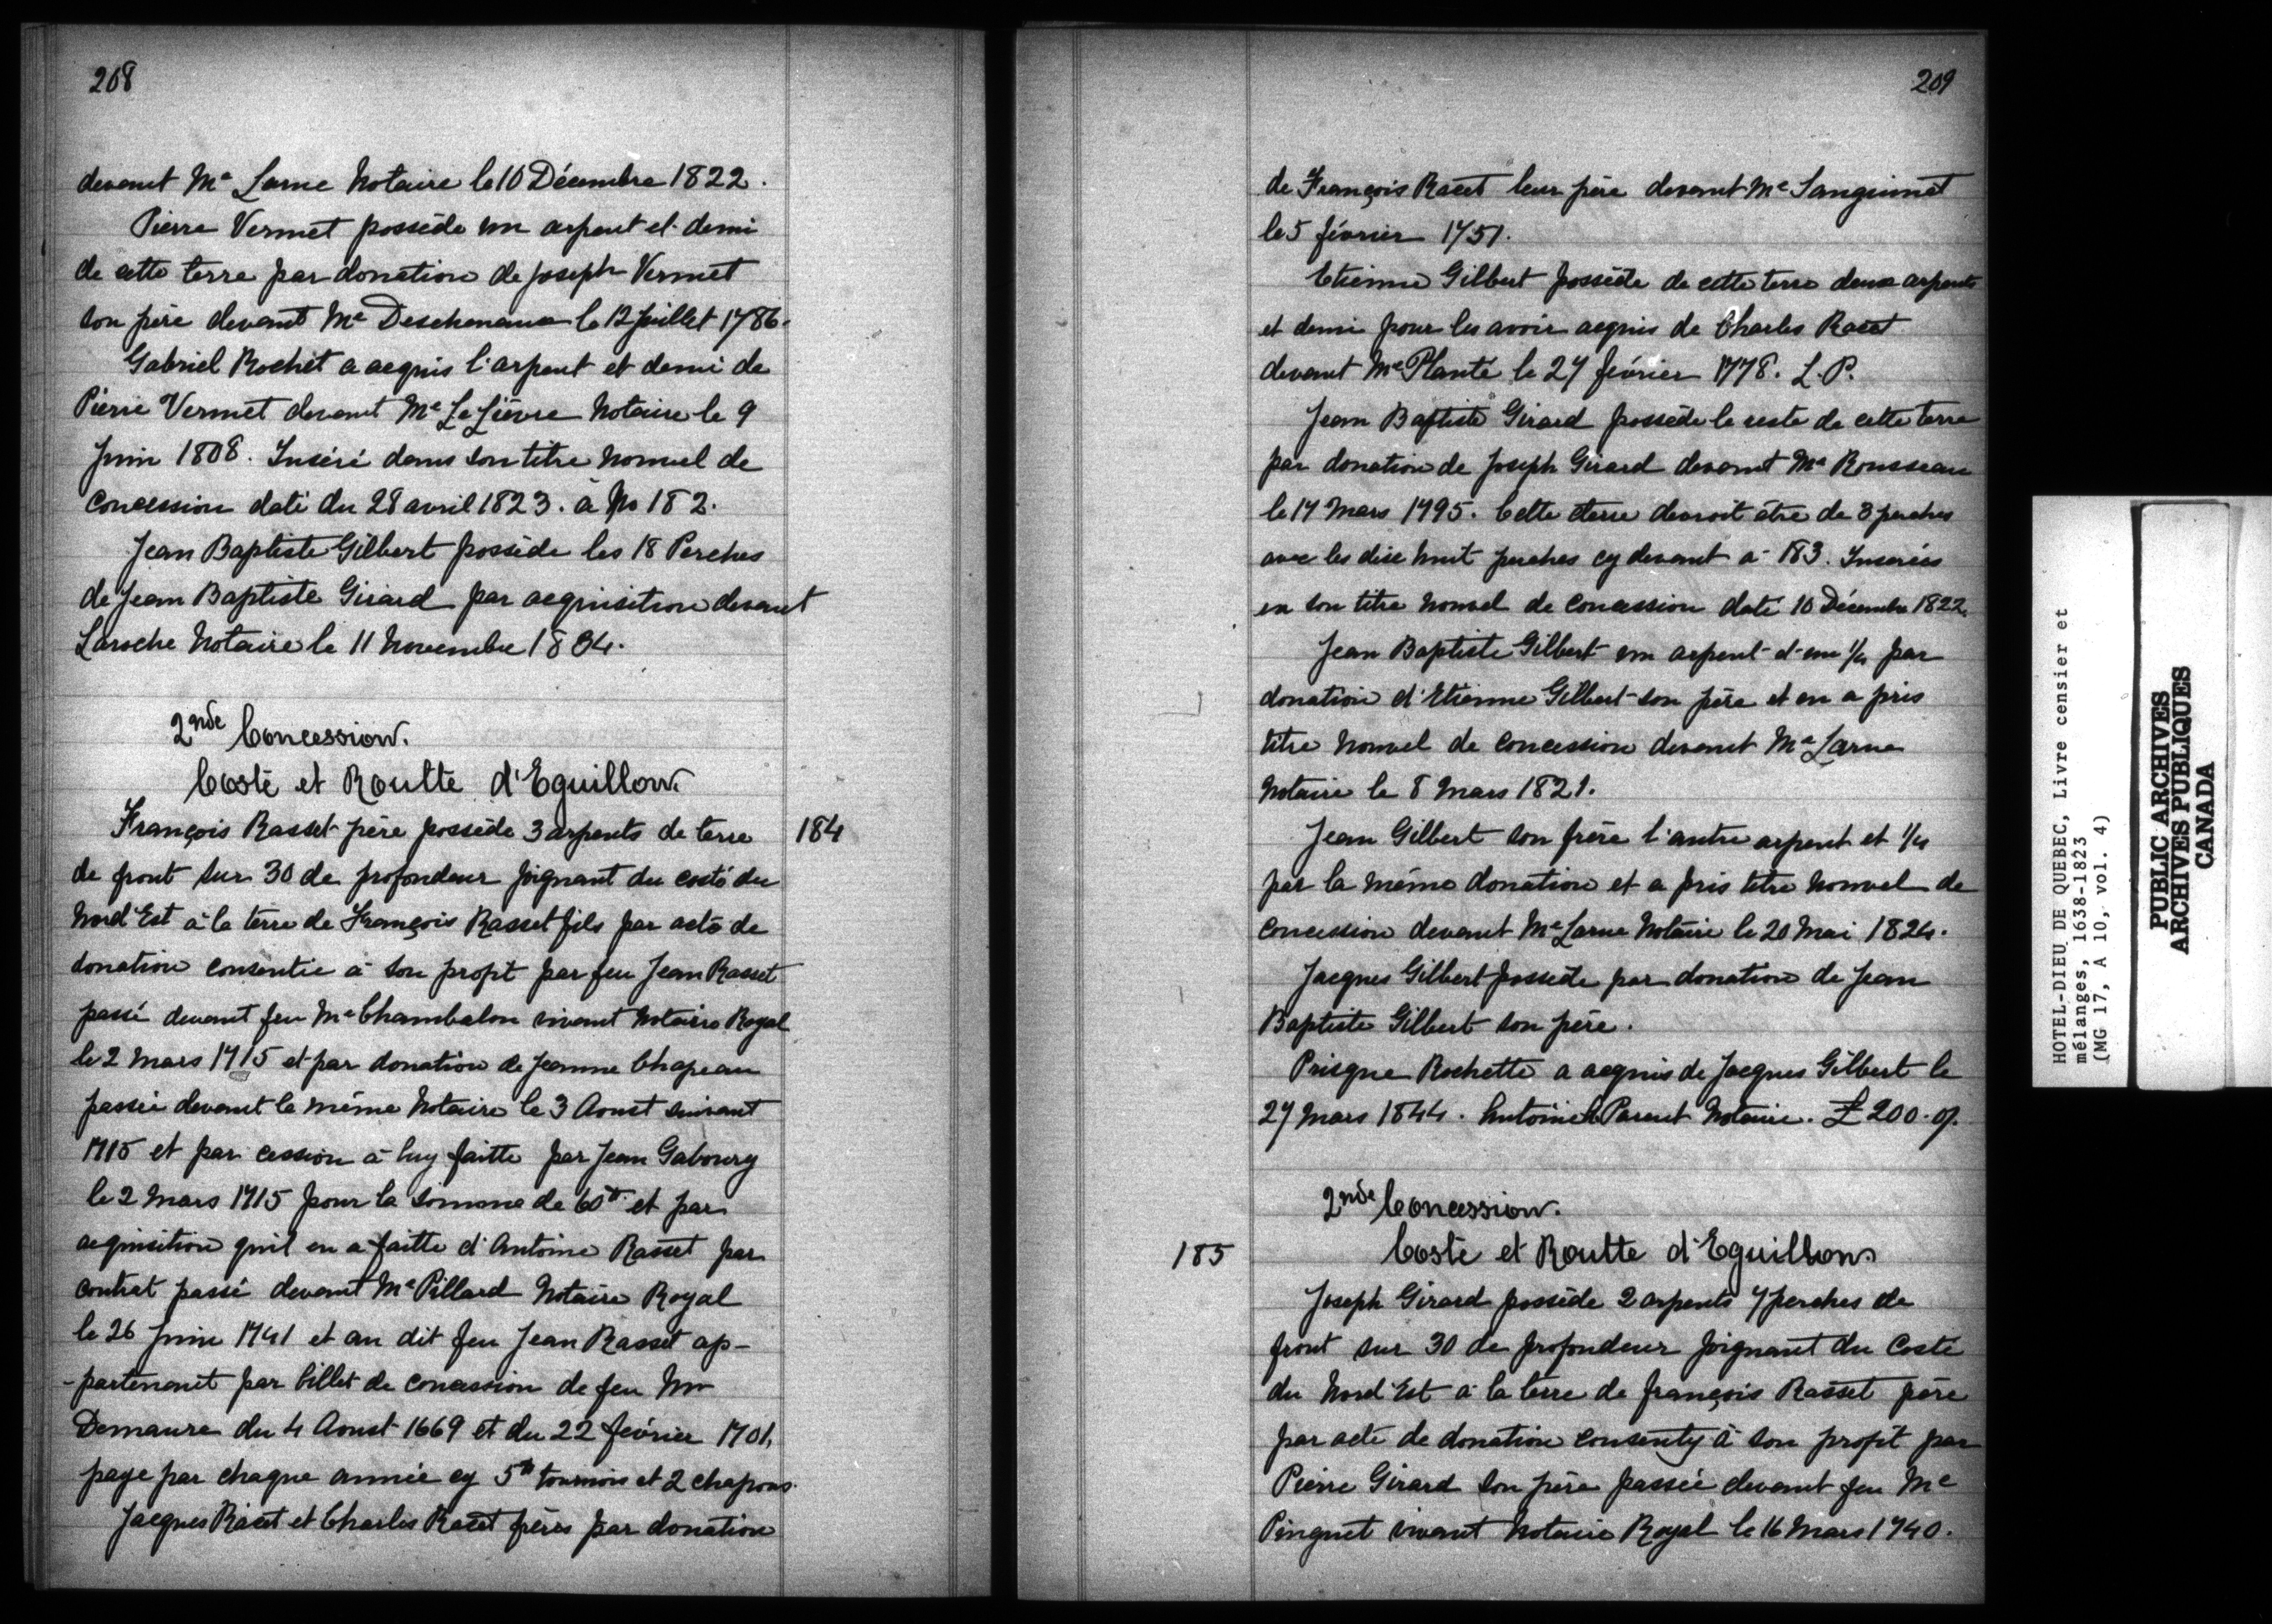 208
devant Me Larue Notaire le 10 Décembre 1822.
Pierre Vermet possède un arpent et demi
de cette terre par donation de Joseph Vermet
son père devant Me Deschenaux le 12 Juillet 1786.
Gabriel Rochet a acquis l'arpent et demi de
Pierre Vermet devant Me Le Lièvre Notaire le 9
Juin 1808. Inséré dans son titre nouvel de
Concession daté du 28 avril 1823. à No 182.
Jean Baptiste Gilbert possède les 18 Perches
de Jean Baptiste Girard par acquisition devant
Laroche Notaire le 11 Novembre 1834.
2nde Concession.
Costé et Routte d'Eguillon.
184
François Rasset père possède 3 arpents de terre
de front sur 30 de profondeur joignant du costé du
Nord Est à la terre de François Rasset fils par acte de
donation consentie à son profit par feu Jean Rasset
passé devant feu Me Chambalon vivant Notaire Royal
le 2 Mars 1715 et par donation de Jeanne Chapeau
passée devant le même Notaire le 3 Aoust suivant
1715 et par cession à luy faitte par Jean Gaboury
le 2 Mars 1715 pour la somme de 60tt et par
acquisition quil en a faitte d'Antoine Rasset par
contrat passé devant Me Pillard Notaire Royal
le 26 Juin 1741 et au dit feu Jean Rasset ap-
-partenoit par billet de concession de feu Mr
Demaure du 4 Aoust 1669 et du 22 février 1701,
paye par chaque année cy 5tt tournois et 2 chapons.
Jacques Racet et Charles Racet frères par donation
209
de François Racet leur père devant Me Sanguinet
le 5 février 1751.
Etienne Gilbert possède de cette terre deux arpents
et demi pour les avoir acquis de Charles Racet
devant Me Planté le 27 février 1778. L.P.
Jean Baptiste Girard possède le reste de cette terre
par donation de Joseph Girard devant Me Rousseau
le 17 Mars 1795. Cette terre devroit être de 8 perches
avec les dix huit perches cy devant à 183. Inserées
en son titre nouvel de concession daté 10 Décembre 1822.
Jean Baptiste Gilbert un arpent et un 1/4 par
donation d'Etienne Gilbert son père et en a pris
titre nouvel de concession devant Me Larue
Notaire le 8 Mars 1821.
Jean Gilbert son frère l'autre arpent et 1/4
par la même donation et a pris titre nouvel de
Concession devant Me Larue Notaire le 20 Mai 1824.
Jacques Gilbert possède par donation de Jean
Baptiste Gilbert son père.
Prisque Rochette a acquis de Jacques Gilbert le
27 Mars 1844. Antoine Parent Notaire. £ 200.
2nde Concession.
185
Costé et Routte d'Eguillon.
Joseph Girard possède 2 arpents 7 perches de
front sur 30 de profondeur joignant du Costé
du Nord Est à la terre de françois Rasset père
par acte de donation consenty à son profit par
Pierre Girard son père passée devant feu Me
Pinguet vivant Notaire Royal le 16 Mars 1740.
HOTEL-DIEU DE QUEBEC, Livre censier et
mélanges, 1638-1823
(MG 17, A 10, vol. 4)
PUBLIC ARCHIVES
ARCHIVES PUBLIQUES
CANADA